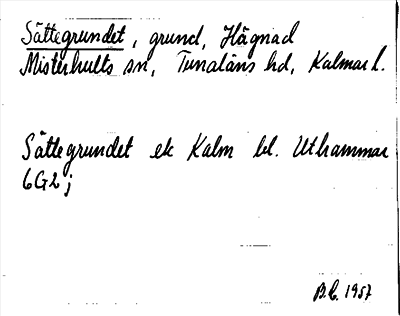 Sättegrundet, grund, Hägnad
Misterhults sn, Tunaläns hd, Kalmar l.
Sättegrundet ek Kalm bl. Uthammar
6G2j
B.C. 1957